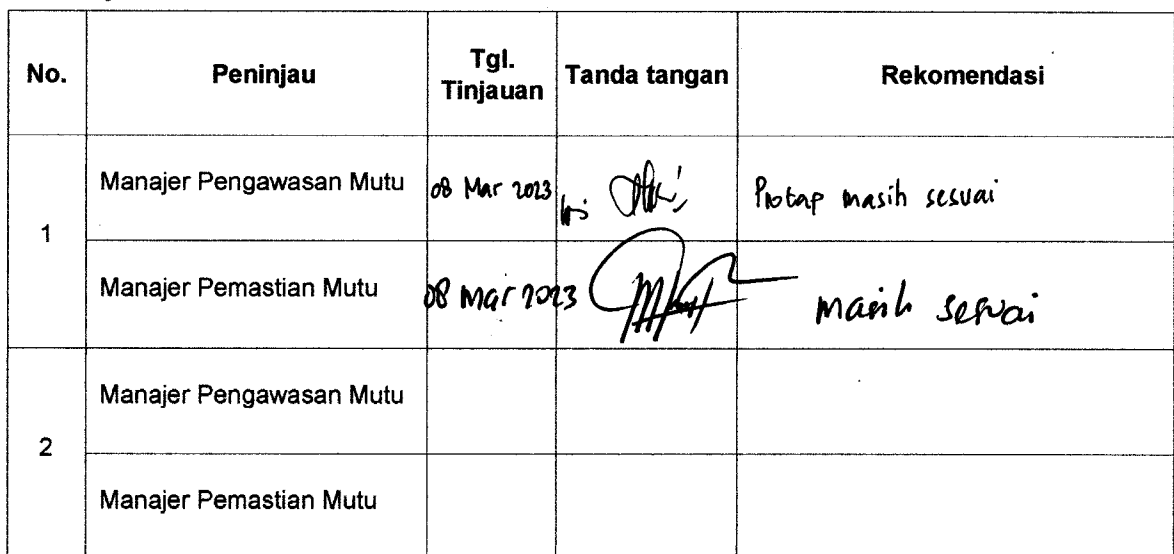 No. Peninjau Tgl. Tinjauan Tanda tangan Rekomendasi
1
Manajer Pengawasan Mutu 08 Mar 2023 Protap masih sesuai
Manajer Pemastian Mutu 08 Mar 2023 masih sesuai
2
Manajer Pengawasan Mutu
Manajer Pemastian Mutu